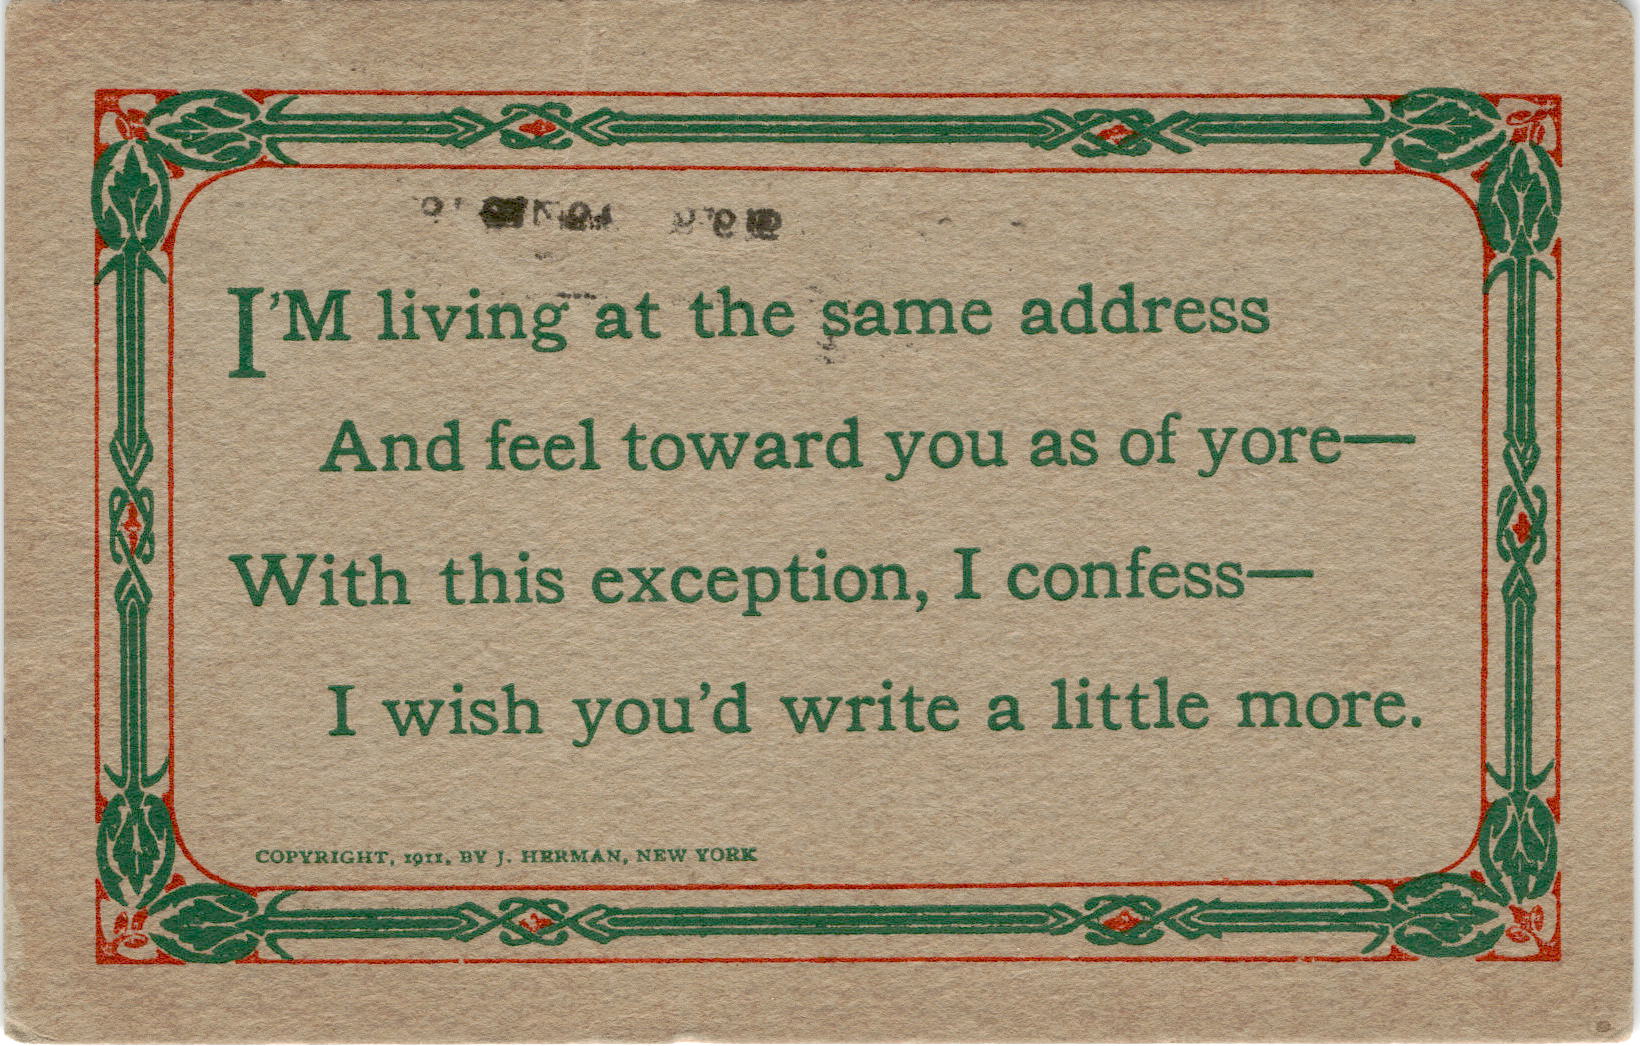 I'M living at the same address
And feel toward you as of yore—
With this exception, I confess—
I wish you'd write a little more.
COPYRIGHT, 1911, BY J. HERMAN, NEW YORK